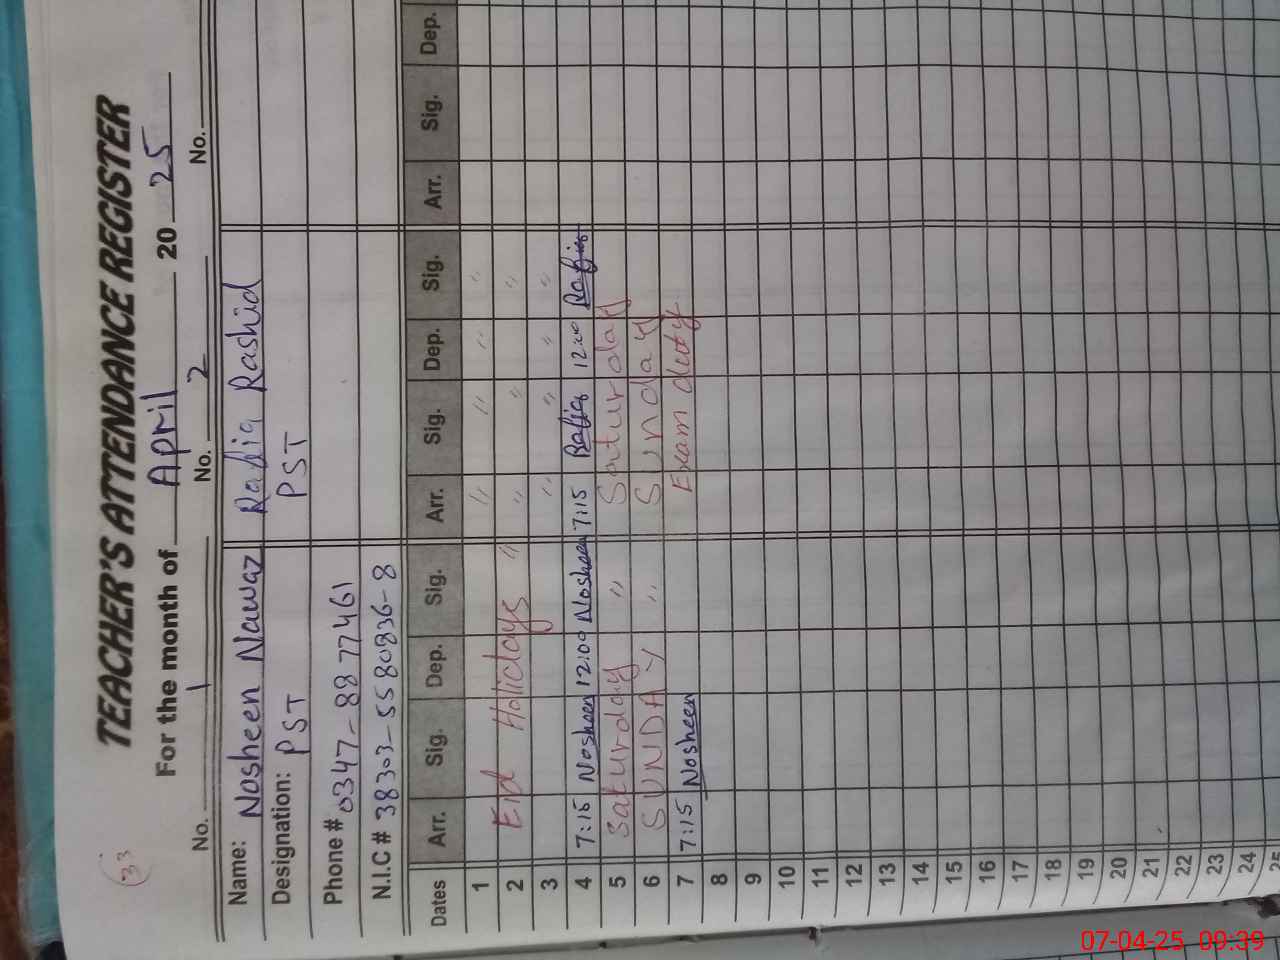 33
TEACHER'S ATTENDANCE REGISTER
For the month of April 20 25
No. 1 No. 2 No.
Name: Nosheen Nawaz Rabia Rashid
Designation: PST PST
Phone # 0347-8877461
N.I.C # 38303-5580836-8
Dates Arr. Sig. Dep. Sig. Arr. Sig. Dep. Sig. Arr. Sig. Dep.
1 " " " "
2 Eid Holidays " " " " "
3 " " " "
4 7:15 Nosheen 12:00 Nosheen 7:15 Rabia 12:00 Rabia
5 Saturday " Saturday
6 SUNDAY " Sunday
7 7:15 Nosheen Exam duty
8
9
10
11
12
13
14
15
16
17
18
19
20
21
22
23
24
25
07-04-25 09:39